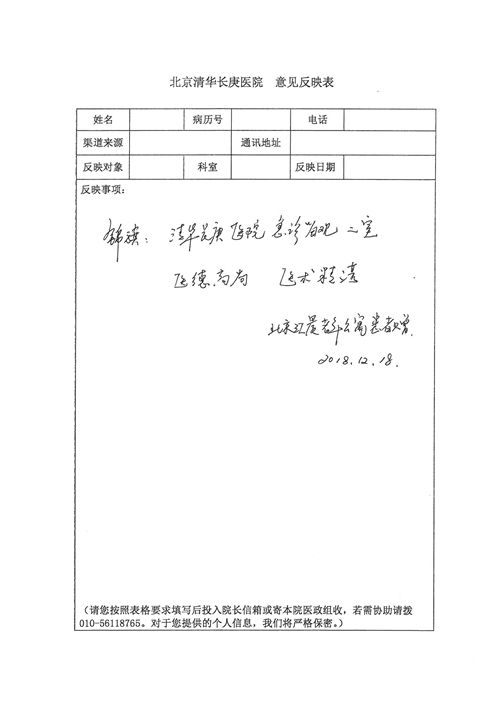 北京清华长庚医院 意见反映表
姓名 病历号 电话
渠道来源 通讯地址
反映对象 科室 反映日期
反映事项：
锦旗：清华长庚医院急诊留观二室
医德高尚 医术精湛
北京 老年公寓患者赠
2018.12.18.
（请您按照表格要求填写后投入院长信箱或寄本院医政组收，若需协助请拨
010-56118765。对于您提供的个人信息，我们将严格保密。）